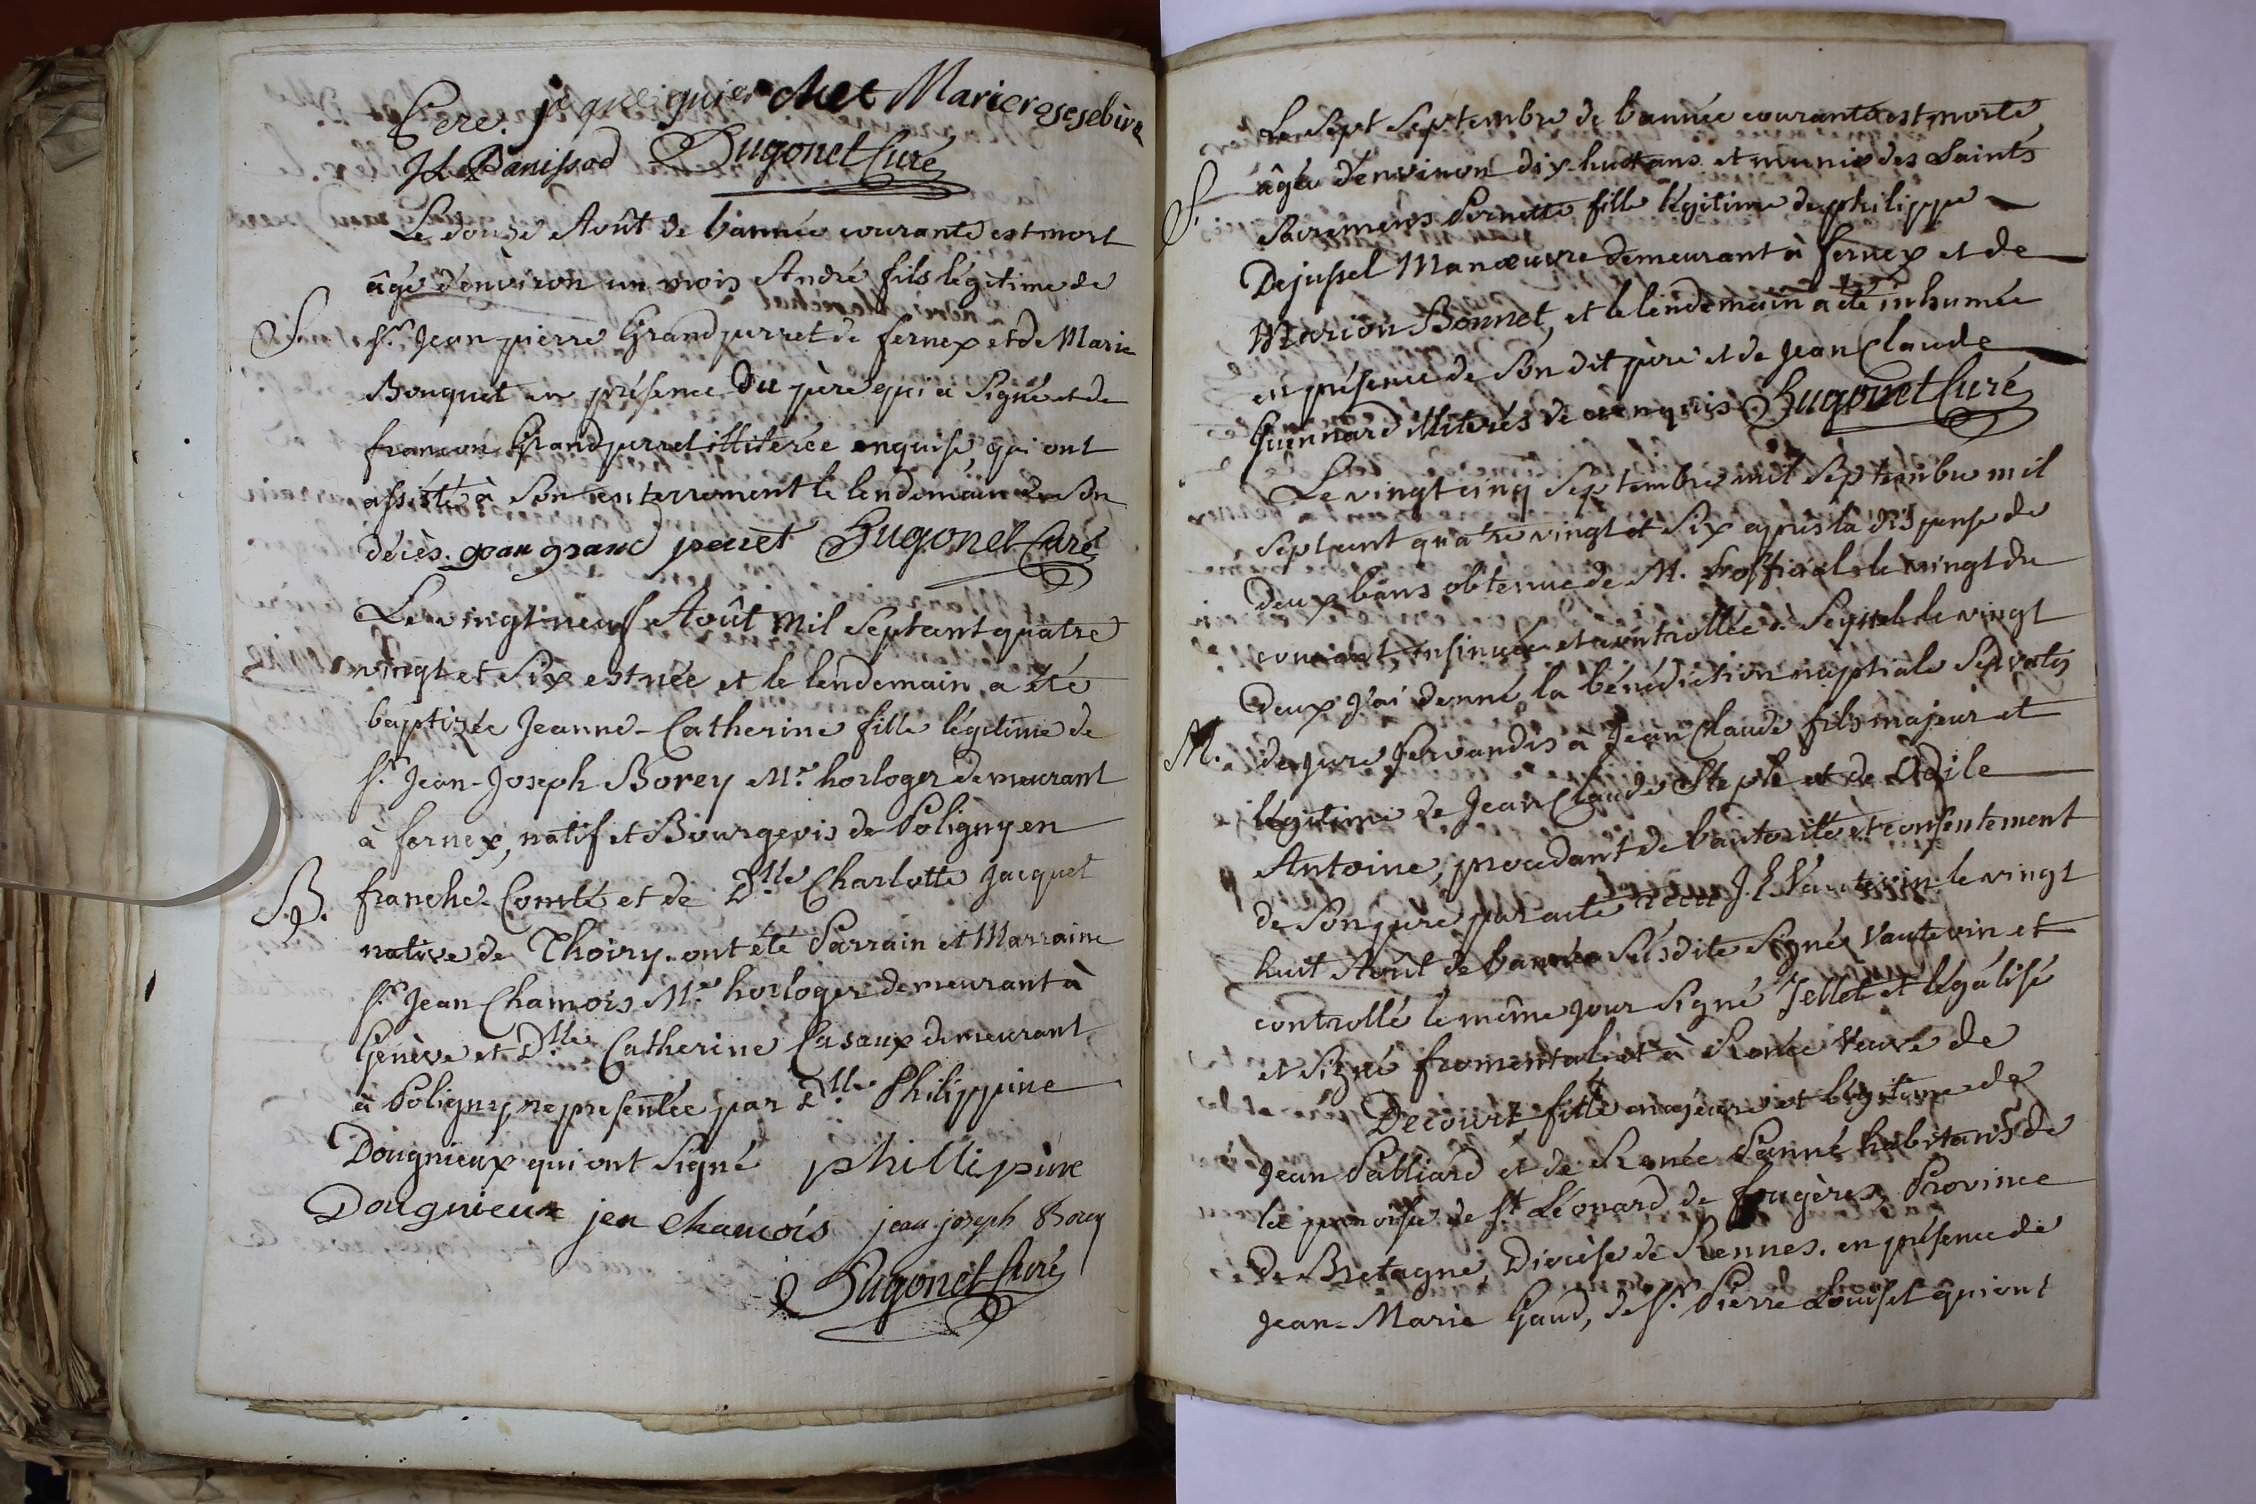 Pere. je queiquier chet Marieresesebire
JL Panissod Hugonet Curé
Le douze Août de l'année courante est mort
âgé d'environ un mois André fils légitime de
S. sr. Jean pierre Grandperret de fernex et de Marie
Bouquet en présence Du père qui a Signé et de
françon Grandperret illiterée enquise, qui ont
assisté à Son enterrement le lendemain de Son
décès. jean grand peret Hugonet Curé
Le vingt neuf Août mil Septant quatre
vingt et Six est née et le lendemain a été
baptizée Jeanne-Catherine fille légitime de
sr. Jean-Joseph Borey Mre. horloger demeurant
à fernex, natif et Bourgeois de Poligny en
B. franche-Comté et de Dlle. Charlotte Jacquet
native de Thoiry. ont été Parrain et Marraine
sr. Jean Chamois Mre. horloger demeurant à
Genève et Dlle. Catherine Casaux demeurant
à Poligny représentée par Dlle. Philippine
Dougnieux qui ont Signé phillipine
Dougnieux jen chamois jean joseph Borey
Hugonet Curé
Le Sept Septembre de l'année courante est morte
S. âgée d'environ dix-huit ans et munie des Saints
Sacremens Pernette fille légitime de philippe
Dejussel Manœuvre demeurant à fernex et de
Marion Bonnet, et le lendemain a été inhumée
en présence de Son dit père et de Jean Claude
Guennard illiterés de ce enquis. Hugonet Curé
Le vingt cinq Septembre mil Septembre mil
Septant quatre vingt et Six après la dispense de
deux bans obtenue de M. l'official le vingt du
courant, insinuée et controllée à Seyssel le vingt
deux J'ai donné la bénédiction nuptiale Servatis
M. de jure Servandis à Jean Claude fils majeur et
légitime de Jean Claude Steple et de Odile
Antoine, procedant de l'autorité et consentement
de Son pere par acte recu J. E. Vautevin le vingt
huit Août de l'année Susdite Signé Vautevin et
controllé le même jour Signé Jellet et légalisé
et Signé fromental; et à Renée Veuve de
Decourt fille majeure et légitime de
Jean Palliard et de Renée Panné habitans de
la paroisse de St. Léonard de fougères, Province
de Bretagne, Diocèse de Rennes. en présence de
Jean-Marie Gaud, de sr. Pierre Louiset qui ont